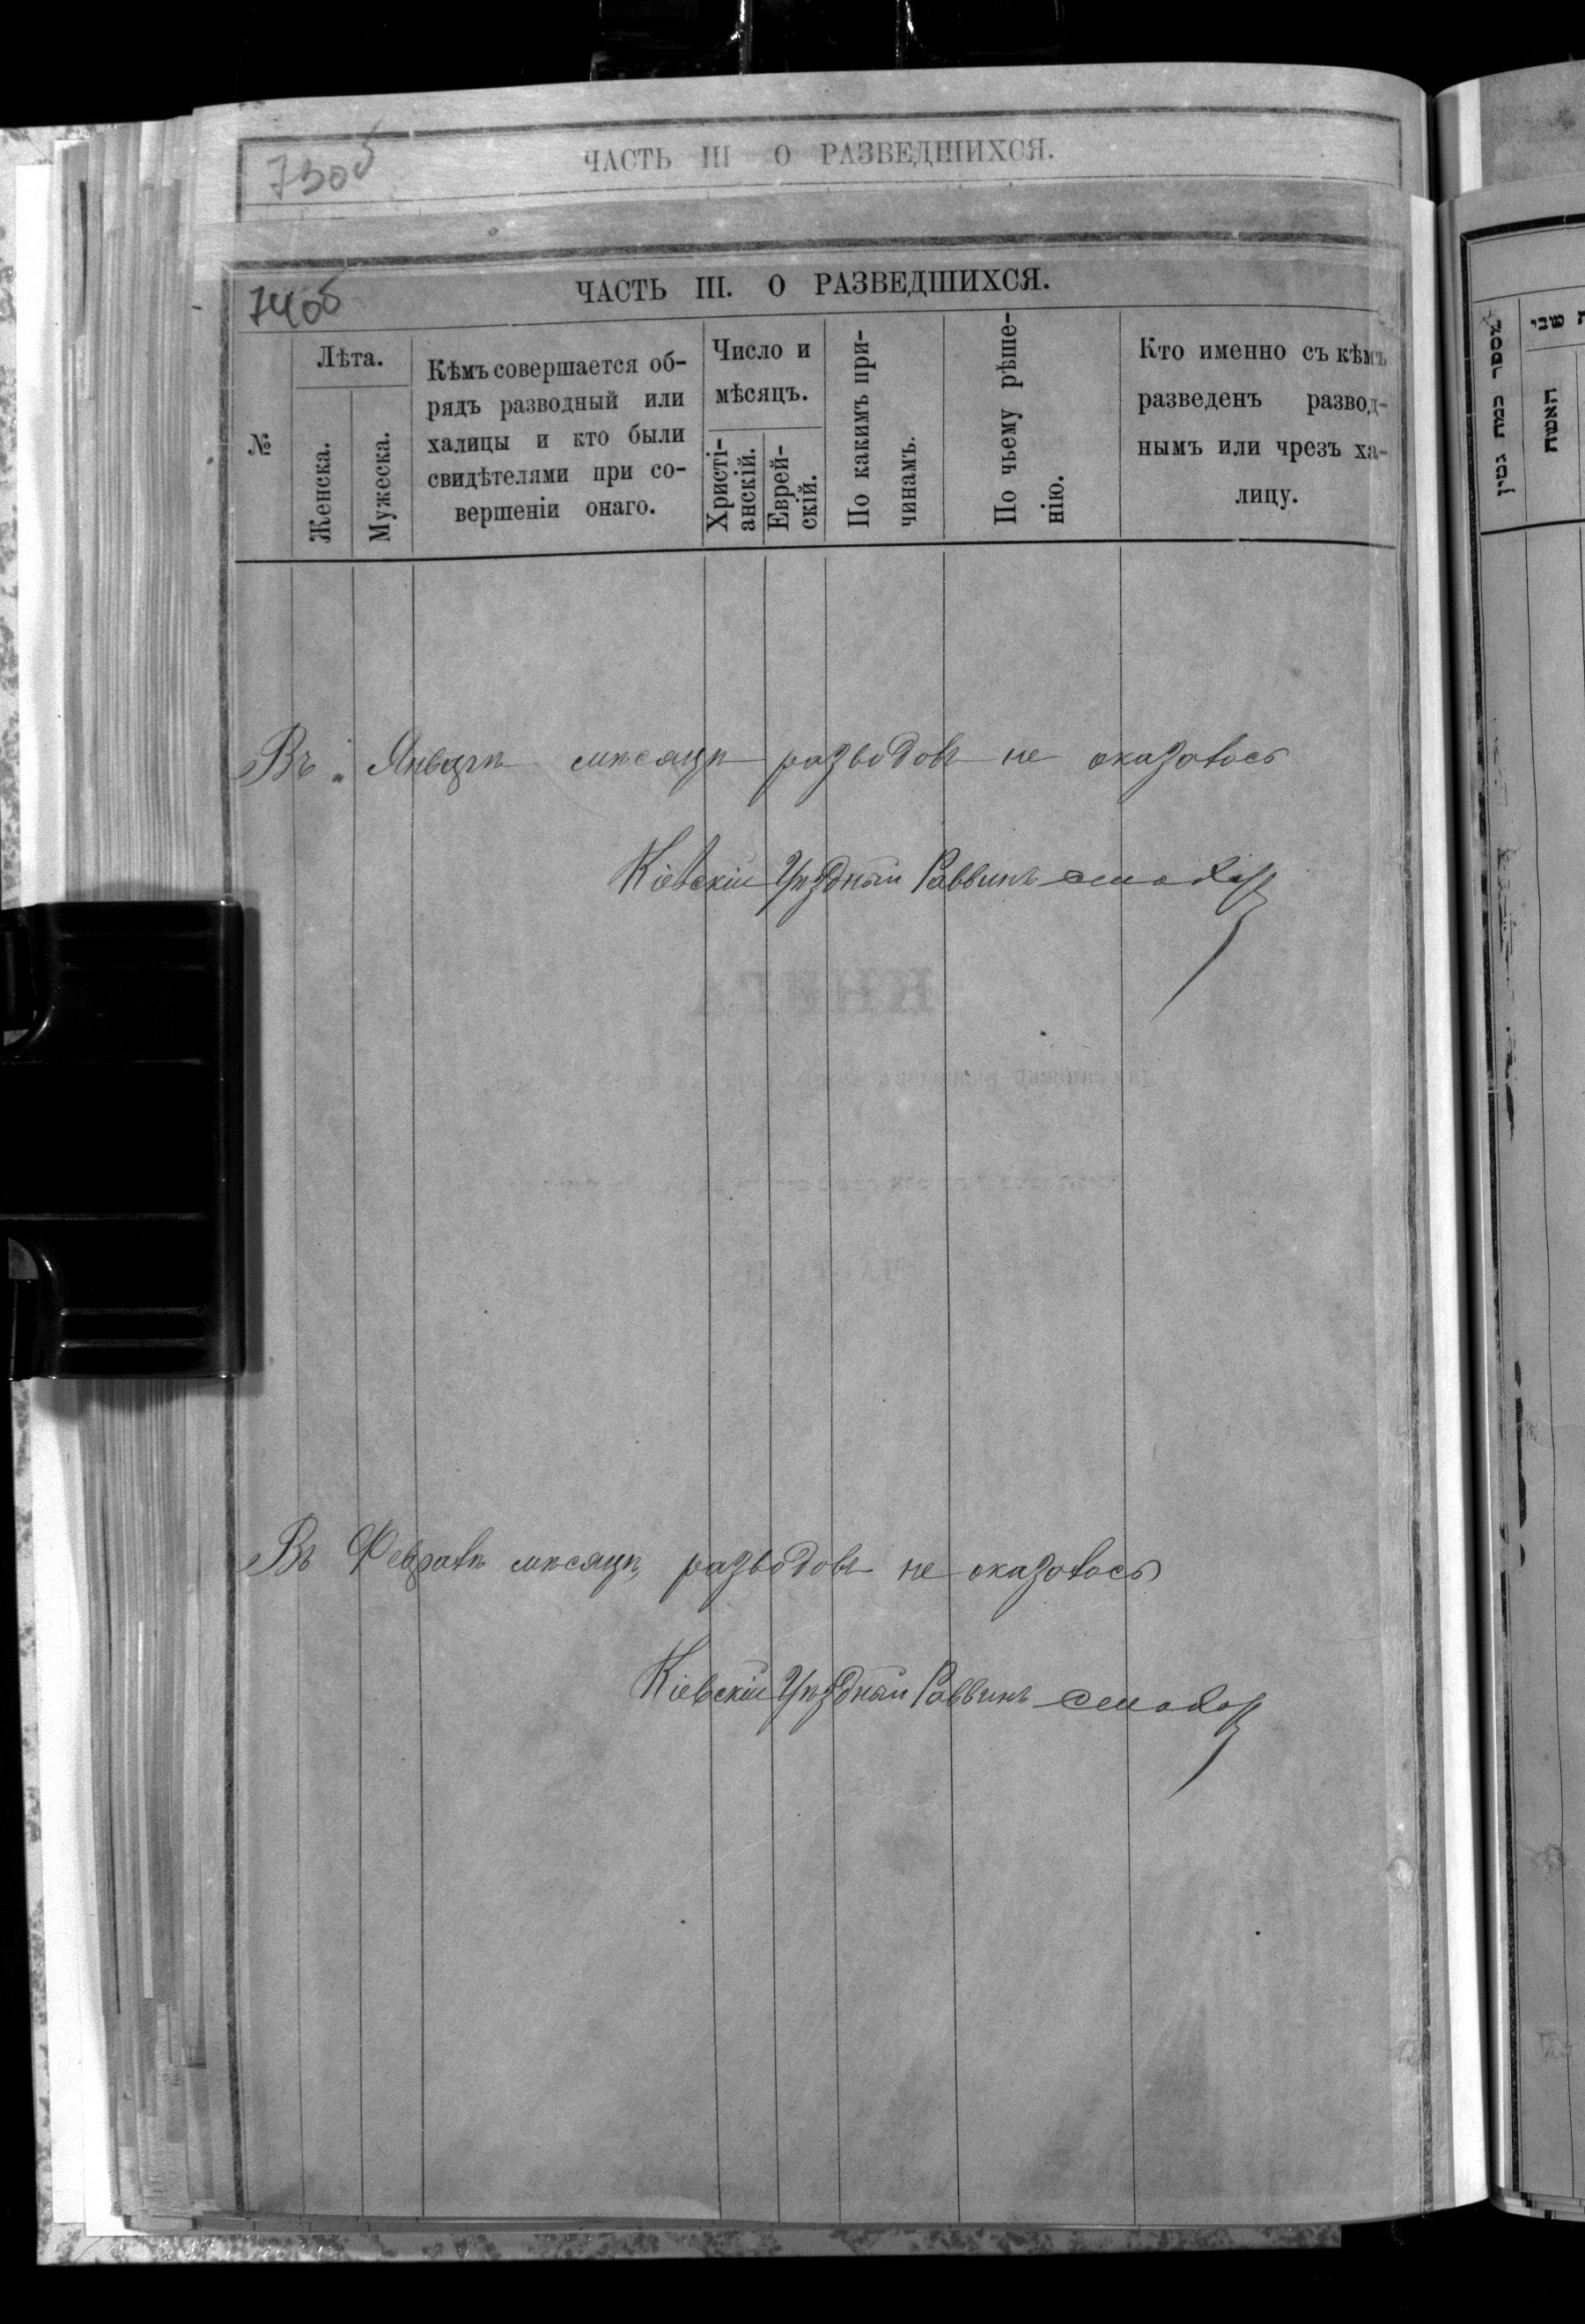 730б
ЧАСТЬ III О РАЗВЕДШИХСЯ.
740б
ЧАСТЬ III. О РАЗВЕДШИХСЯ.
№
Лѣта.
Женска.
Мужеска.
Кѣмъ совершается об-
рядъ разводный или
халицы и кто были
свидѣтелями при со-
вершеніи онаго.
Число и
мѣсяцъ.
Христі-
анскій.
Еврей-
скій.
По какимъ при-
чинамъ.
По чьему рѣше-
нію.
Кто именно съ кѣмъ
разведенъ развод-
нымъ или чрезъ ха-
лицу.
Въ Январѣ мѣсяцѣ разводовъ не оказалось
Кіевскій Уѣздный Раввинъ
Въ Февралѣ мѣсяцѣ разводовъ не оказалось
Кіевскій Уѣздный Раввинъ
מספר כמה גטין
האשה
שני